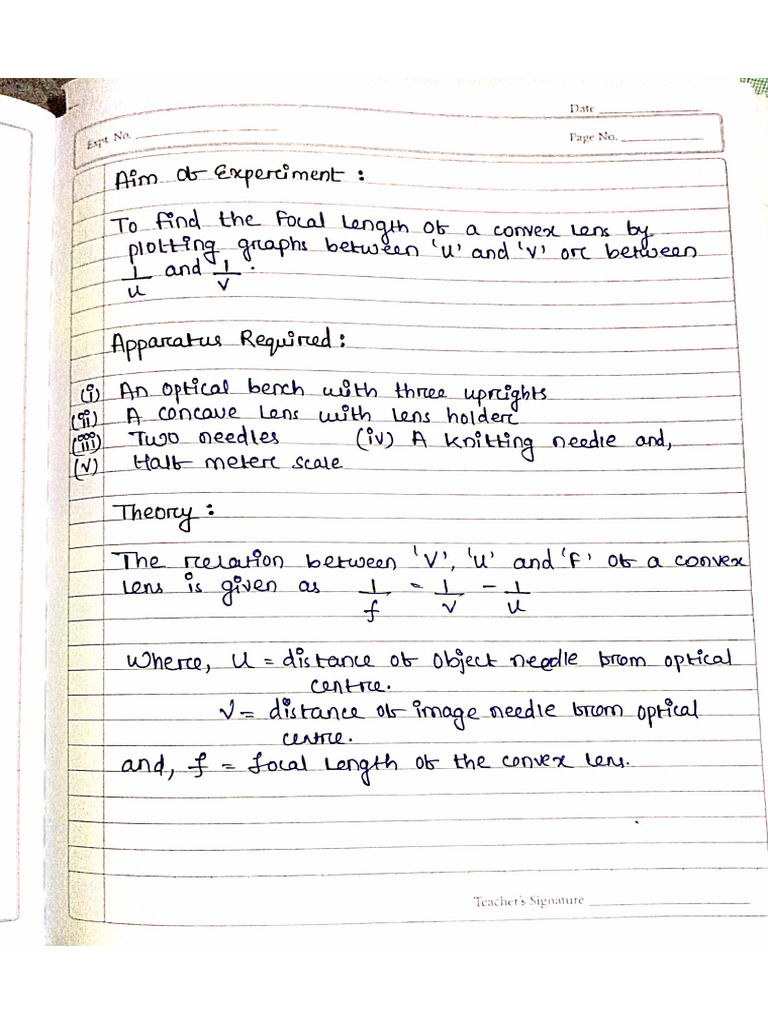 Date
Expt. No.
Page No.
Aim of Experiment :
To find the focal length of a convex lens by
plotting graphs between 'u' and 'v' or between
1/u and 1/v .
Apparatus Required :
(i) An optical bench with three uprights
(ii) A concave lens with lens holder
(iii) Two needles (iv) A knitting needle and,
(v) Half meter scale
Theory :
The relation between 'v', 'u' and 'f' of a convex
lens is given as 1/f = 1/v - 1/u
where, u = distance of object needle from optical
centre.
v = distance of image needle from optical
centre.
and, f = focal length of the convex lens.
Teacher's Signature